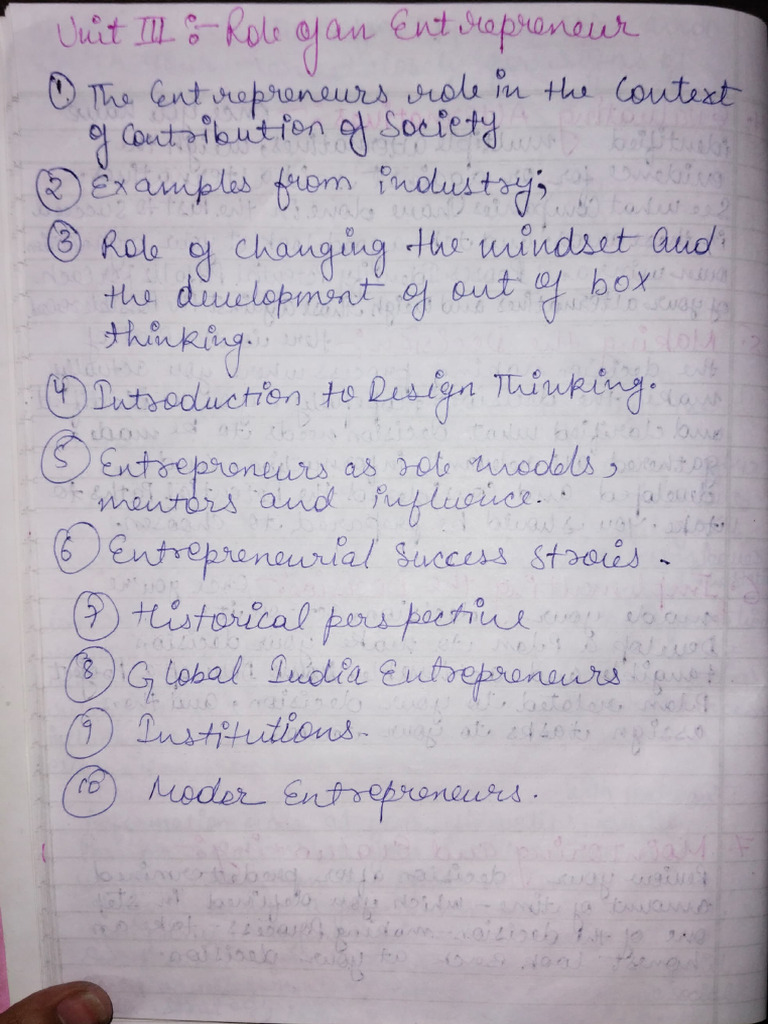 Unit III :- Role of an Entrepreneur
① The Entrepreneurs role in the Context
of Contribution of Society
② Examples from industry;
③ Role of changing the mindset and
the development of out of box
thinking.
④ Introduction to Design Thinking.
⑤ Entrepreneurs as role models,
mentors and influence.
⑥ Entrepreneurial Success Stroies.
⑦ Historical perspective
⑧ Global India Entrepreneurs
⑨ Institutions.
⑩ Moder Entrepreneurs.